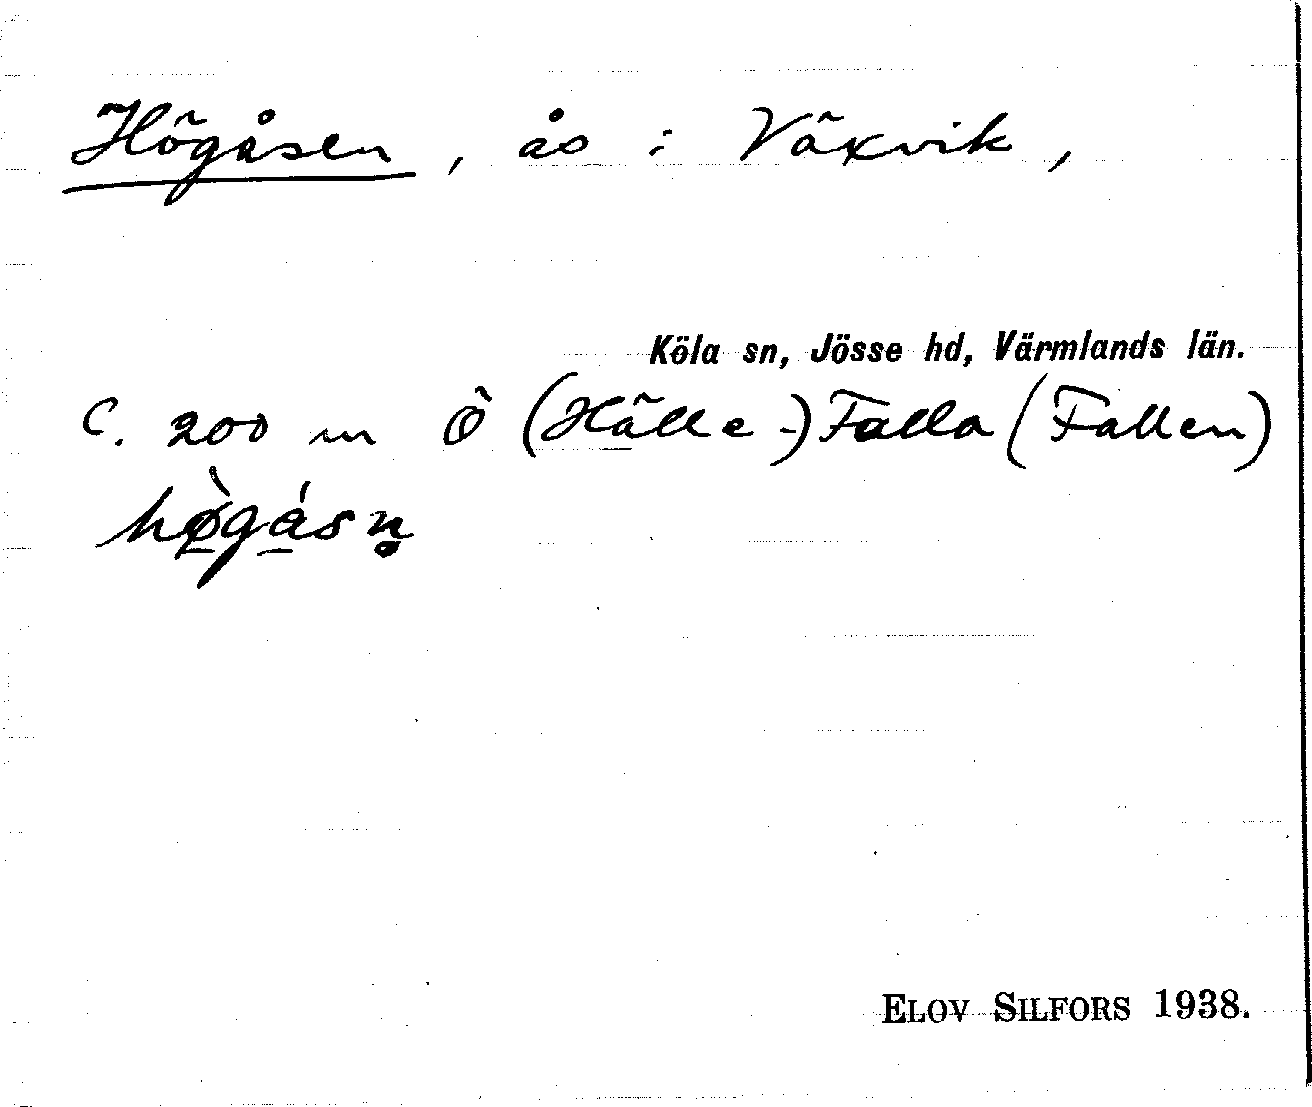 Högåsen, ås i Växvik,
Köla sn, Jösse hd, Värmlands län.
C. 200 m Ö (Hälle-)Falla (Fallen)
hø̱̀gá̱sn̥
ELOV SILFORS 1938.